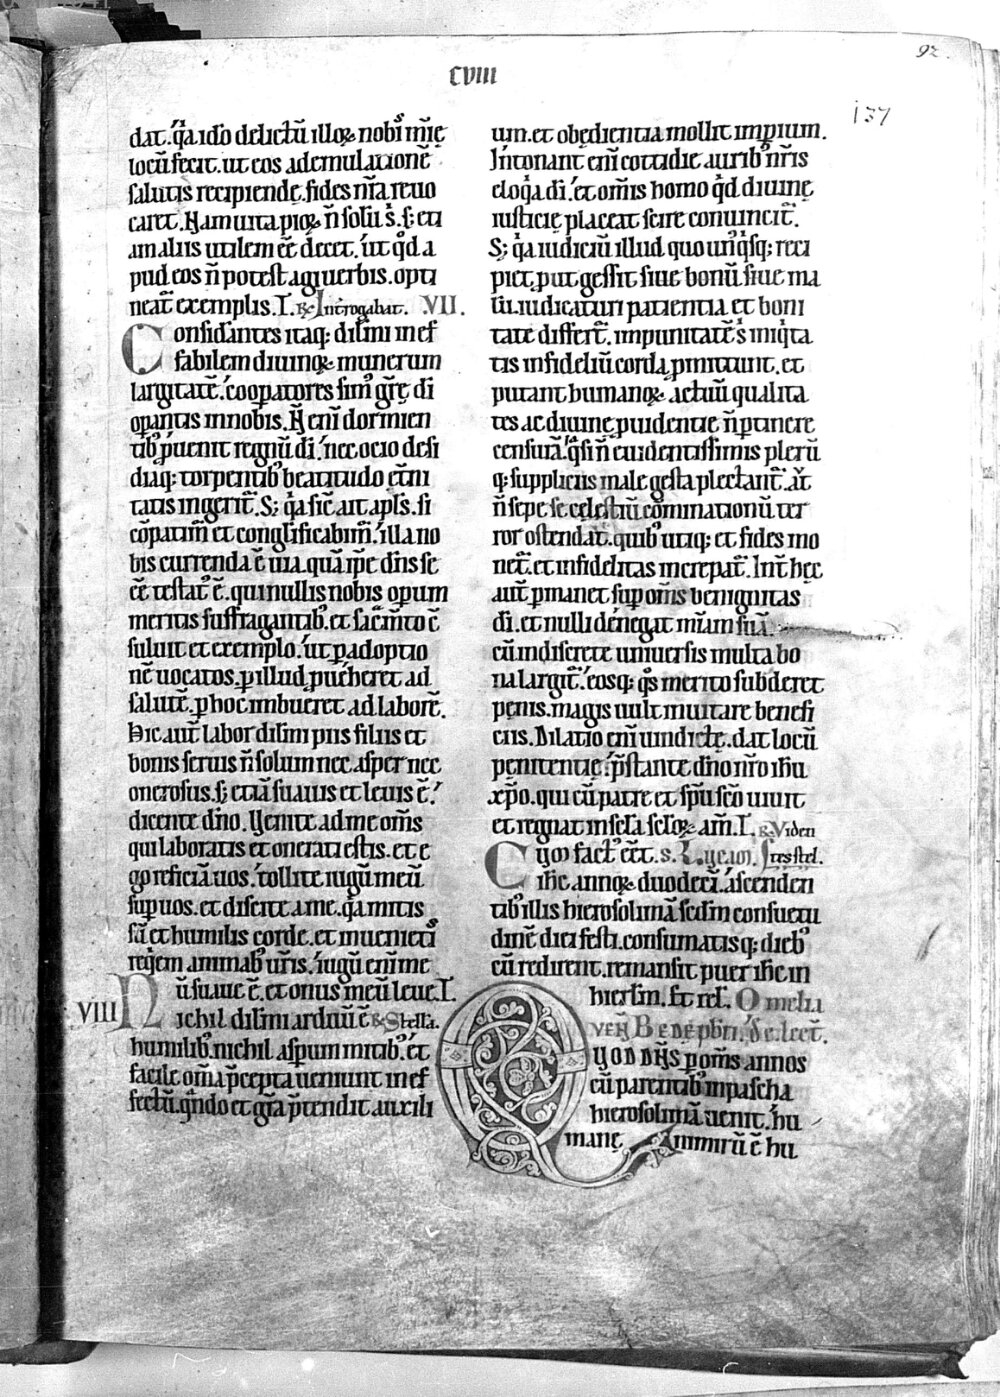 92
CVIII
137
dat. q̈a ido delictũ illoꝝ nobi᷒ mĩę
locũ fecit. ut eos ad emulationẽ
salutis recipiendę. fides nr̃a reuo
caret. Nam uita pioꝝ ñ solũ s̃. s; eti
am aliis utilem eẽ decet. ut qd̾ a
pud eos ñ potest agi uerbis. opti
neat̃ exemplis. I. ℟ Int̾rogabat. VII.
Confidantes itaq; dil̃imi inef
fabilem diuinoꝝ munerum
largitatẽ. cooꝑatores sim᷒ gr̃ę di
oꝑantis in nobis. Ñ eni᷒ dormien
tib᷒ p̾uenit regnũ di᷒. nec ocio desi
diaq; torpentib᷒ beatitudo et̃ni
tatis ingerit̃. S; q̈a sic̃ ait apl̃s. si
cõpatim̃ et conglificabim̃. illa no
bis currenda ẽ uia. quã ip̃e dñs se
eẽ testat᷒ ẽ. qui nullis nobis operum
meritis suffragantib᷒. et sac̃m̃to cõ
suluit et exemplo. ut ꝑ adoptio
nẽ uocatos. ꝑ illud ꝓueheret ad
salutẽ. ꝑ hoc imbueret ad laborẽ.
Hic aut̃ labor dil̃imi piis filiis et
bonis seruis ñ solum nec asper nec
onerosus. s; etiã suauis et leuis ẽ.
dicente dño. Uenite ad me om̃s
qui laboratis et onerati estis. et e
go reficiã uos. Tollite iugũ meũ
suꝑ uos. et discite a me. q̈a mitis
sũ et humilis corde. et inuenieti᷒
req̾em animab᷒ uris̃. iugũ eni᷒ me
ũ suaue ẽ. et onus meũ leue. I.
VIII Nichil dil̃imi arduũ ẽ ℟ Stella.
humilib᷒. nichil aspum mitib᷒. et
facile om̃a p̃cepta ueniunt in ef
fectũ. qñdo et gr̃a p̃tendit auxili
um. et obędientia mollit imperium.
Intonant eni᷒ cottidie aurib᷒ nr̃is
eloq̈a di᷒. et om̃is homo qd̾ diuinę
iusticię placeat scire conuincit̃.
S; q̈a iudiciũ illud quo un᷒q̾sq; reci
piet. put gessit siue bonũ siue ma
lũ. iudicaturi patientia et boni
tate differt̃. impunitatẽ s̃ iniq̾ta
tis infideliũ corda p̃mittunt. et
putant humanoꝝ actuũ qualita
tes ac diuinę ꝓuidentię ñ ꝑtinere
censurã. q̈si ñ euidentissimis plerũ
q; suppliciis male gesta plectant̃. at̾
ñ sepe se cęlestiũ cõminationũ ter
ror ostendat. quib᷒ utiq; et fides mo
net̃. et infidelitas increpat̃. Int̃ hec
aut̃ ꝑmanet suꝑ om̃s benignitas
di᷒. et nulli dénegat mĩam suã.
cũ indiscrete uniuersis multa bo
na largit̃. eosq; q̾s merito subderet
penis. magis uult inuitare benefi
ciis. Dilatio eni᷒ uindictę. dat locũ
penitentię. p̃stante dño nr̃o ihũ
xp̃o. qui cũ patre et sp̃u sc̃o uiuit
et regnat in sc̃la sc̃loꝝ am̃. I. ℟ Viden
Cum fact᷒ eẽt. S. Lucam. tes stel.
ihc annoꝝ duodeci᷒. ascenden
tib᷒ illis hierosolimã sedm̃ consuetu
dinẽ diei festi. consumatisq; dieb᷒
cũ redirent. remansit puer ihc in
hierlm̃. Et rel᷒. Omelia
ven̾ Bede pbr̃i. de lect.
Quod dñs ꝑ om̃s annos
cũ parentib᷒ in pascha
hierosolimã uenit. hu
manę
nimirũ ẽ hu